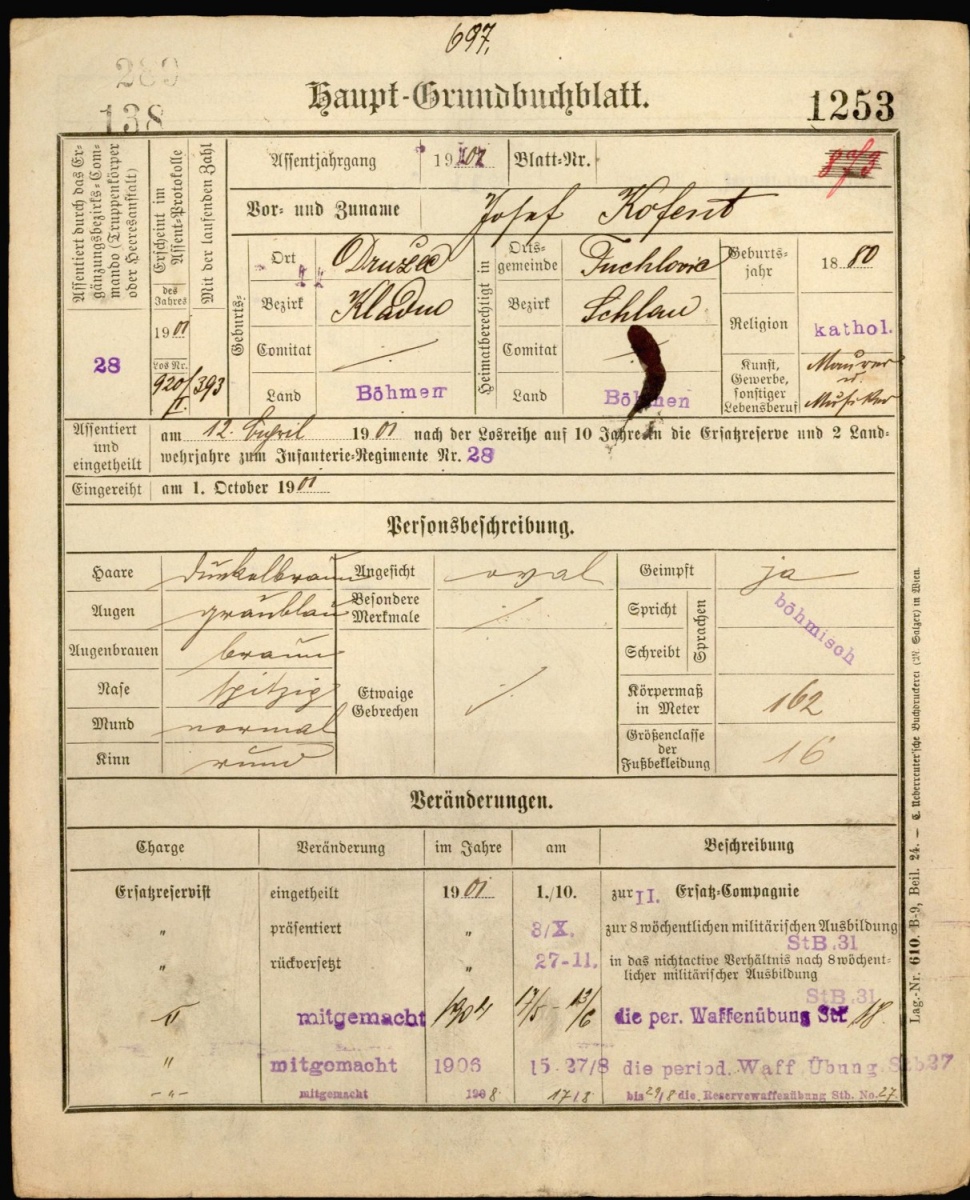 697.
289
138
Haupt-Grundbuchblatt.
1253
Assentiert durch das Ergänzungsbezirks-Commando (Truppenkörper oder Heeresanstalt)
28
Erscheint im Assent-Protokolle
des Jahres
1901
Los Nr.
920/II.
Mit der laufenden Zahl
393
Assentjahrgang 1901 Blatt-Nr.
Vor- und Zuname Josef Kofent
Geburts-
Ort Družec
Bezirk Kladno
Comitat ⁒
Land Böhmen
Heimatberechtigt in
Ortsgemeinde Tuchlovic
Bezirk Schlan
Comitat
Land Böhmen
Geburtsjahr 1880
Religion kathol.
Kunst, Gewerbe, sonstiger Lebensberuf Maurer u. Musiker
Assentiert und eingetheilt
am 12. April 1901 nach der Losreihe auf 10 Jahre in die Ersatzreserve und 2 Land-
wehrjahre zum Infanterie-Regimente Nr. 28
Eingereiht am 1. October 1901
Personsbeschreibung.
Haare dunkelbraun
Augen graublau
Augenbrauen braun
Nase spitzig
Mund normal
Kinn rund
Angesicht oval
Besondere Merkmale ⁒
Etwaige Gebrechen ⁒
Geimpft ja
Spricht
Schreibt
Sprachen
böhmisch
Körpermaß in Meter 162
Größenclasse der Fußbekleidung 16
Veränderungen.
Charge Veränderung im Jahre am Beschreibung
Ersatzreservist eingetheilt 1901 1./10. zur II. Ersatz-Compagnie
" präsentiert " 3/X. zur 8 wöchentlichen militärischen Ausbildung
StB.31
" rückversetzt " 27-11. in das nichtactive Verhältnis nach 8 wöchent-
licher militärischer Ausbildung
StB.31
" mitgemacht 1904 17/5 - 13/6 die per. Waffenübung StB 18.
" mitgemacht 1906 15-27/8 die period. Waff.Übung Stb27
-"- mitgemacht 1908. 17/8 bis 29/8 die Reservewaffenübung Stb. No. 27.
Lag.-Nr. 610. B-9, Beil. 24. — C. Ueberreuter'sche Buchdruckerei (M. Salzer) in Wien.